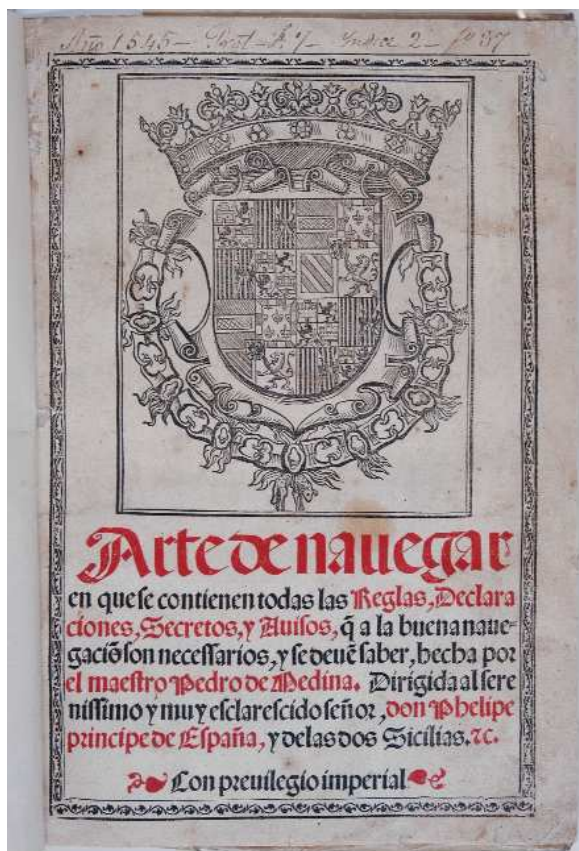 Año 1545— 2— fº 37
Arte de nauegar
en que se contienen todas las Reglas, Declara
ciones, Secretos, y Auisos, q̃ a la buena naue-
gaciõ son necessarios, y se deuẽ saber, hecha por
el maestro Pedro de Medina. Dirigida al sere
nissimo y muy esclarescido señor, don Phelipe
principe de España, y delas dos Sicilias. ⁊c.
Con preuilegio imperial